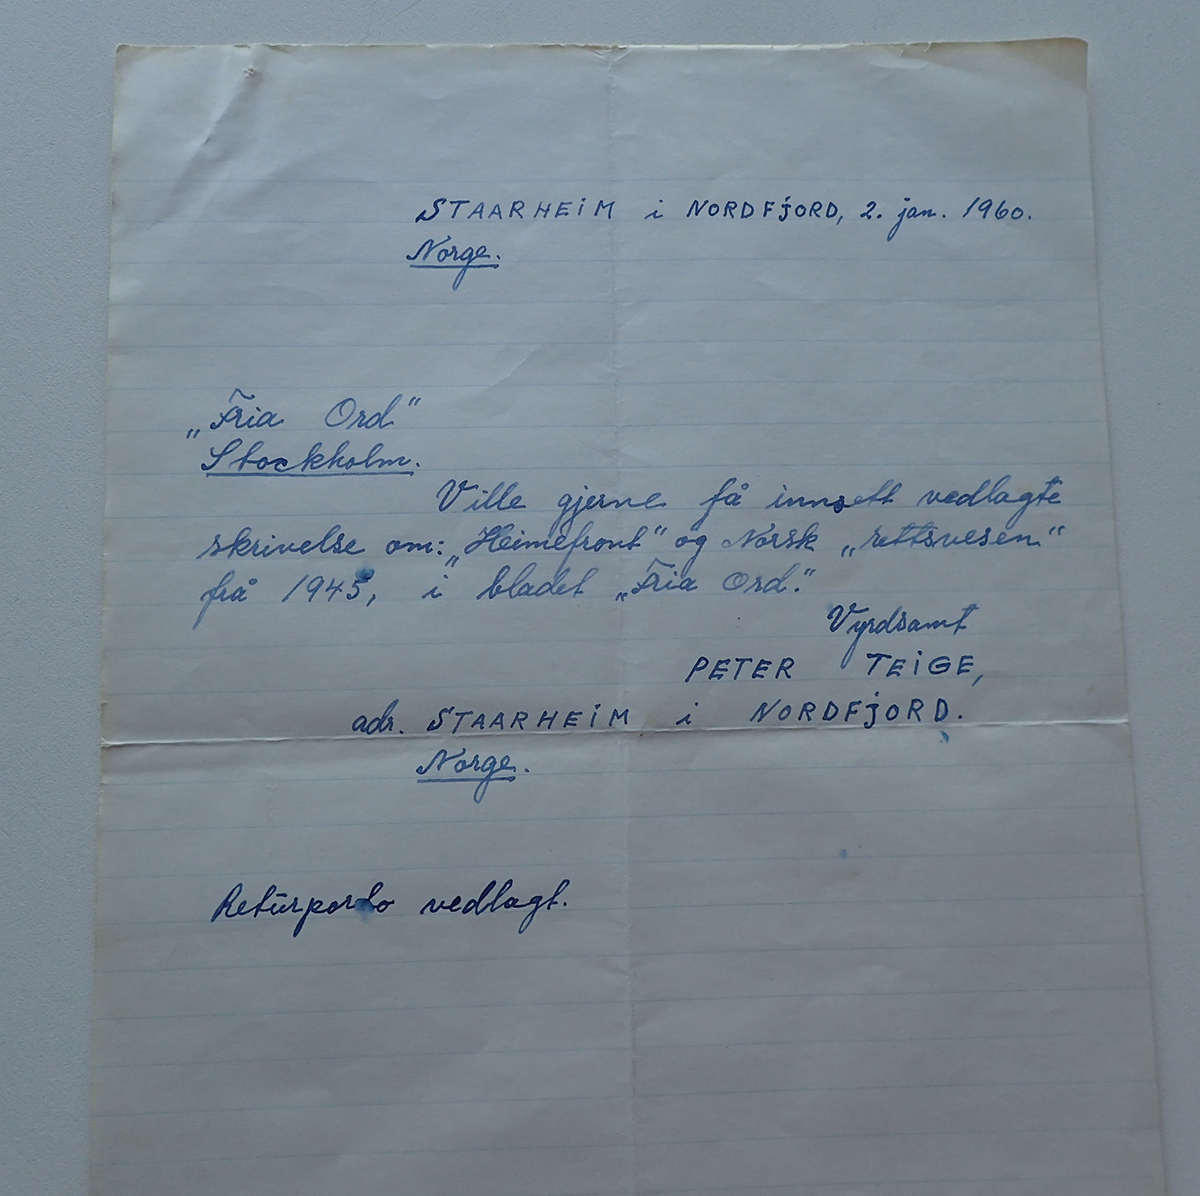 STAARHEIM i NORDFJORD, 2. jan. 1960.
Norge.
„Fria Ord“
Stockholm.
Ville gjerne få innsett vedlagte
skrivelse om: „Heimefront“ og Norsk „rettsvesen“
frå 1945, i bladet „Fria Ord“.
Vyrdsamt
PETER TEIGE,
adr. STAARHEIM i NORDFJORD.
Norge.
Returporto vedlagt.